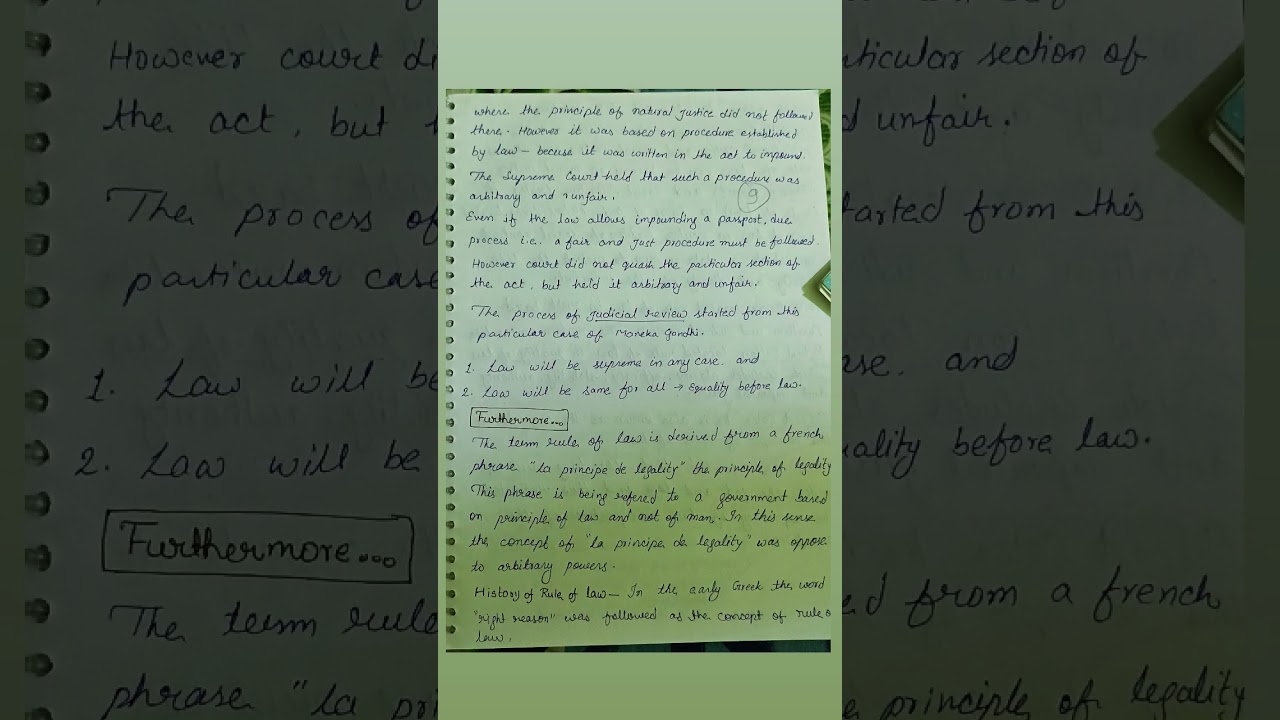 where the principle of natural justice did not followed
there. However it was based on procedure established
by law – becuse it was written in the act to impound.
The Supreme Court held that such a procedure was
arbitrary and unfair.
9
Even if the law allows impounding a passport, due
process i.e. a fair and just procedure must be followed.
However court did not quash the particular section of
the act, but held it arbitrary and unfair.
The process of judicial review started from this
particular case of Moneka Gandhi.
1. Law will be supreme in any case. and
2. Law will be same for all → Equality before law.
Furthermore...
The term rule of law is derived from a french
phrase "la principe de legality" the principle of legality
This phrase is being refered to a government based
on principle of law and not of man. In this sense
the concept of "la principe de legality" was oppose
to arbitrary powers.
History of Rule of law – In the early Greek the word
"right reason" was followed as the concept of rule o
law.